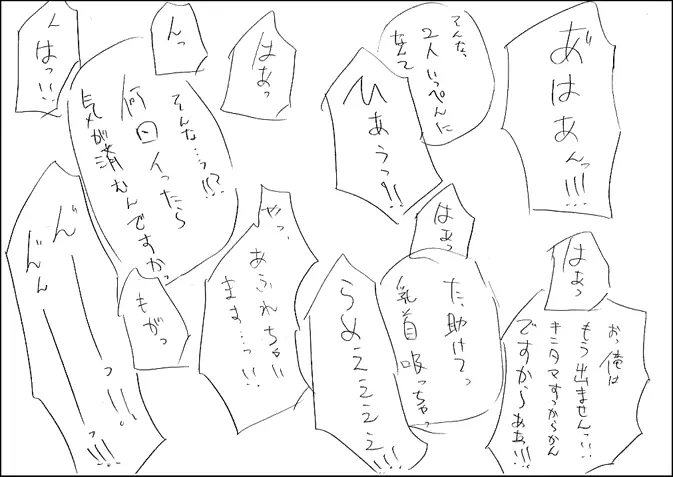 あ゛はあんっ!!!
そんな、
2人いっぺんに
なんて
ひあうっ!!
はあっ
んっ
そんな…っ!!?
何回イったら
気が済むんですかっ
はっ!!
はぁっ
おっ俺は
もう出ませんっ!!
キンタマすっからかん
ですからああ!!!
はぁっ
たっ助けてっ
乳首吸っちゃっ
らめえええええ!!!
やっ、
あふれちゃい
ます…っ!!
もがっ
ん゛――っ!!
ん゛んん――っ!!!